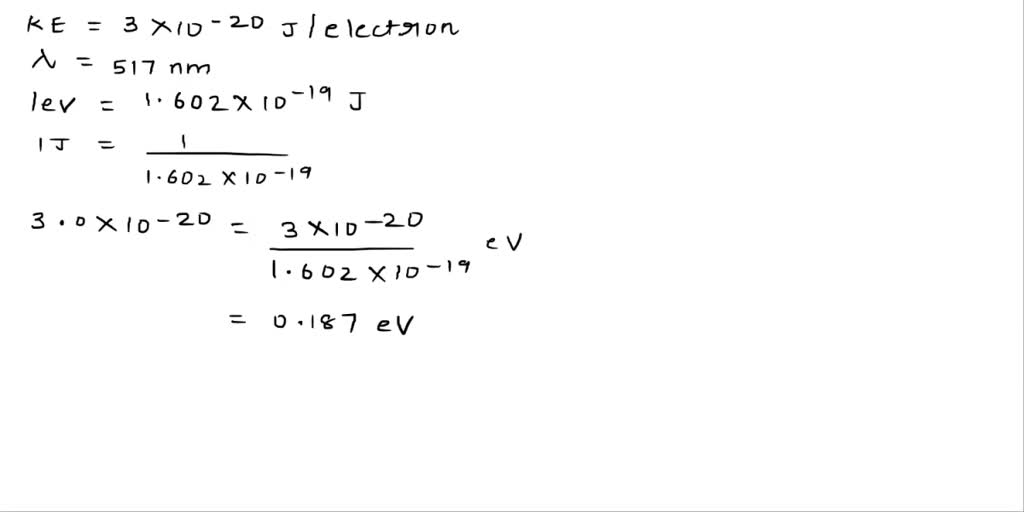 KE = 3 × 10^-20 J/electron
λ = 517 nm
1ev = 1.602 × 10^-19 J
1J = 1 / 1.602 × 10^-19
3.0 × 10^-20 = 3 × 10^-20 / 1.602 × 10^-19 eV
= 0.187 eV